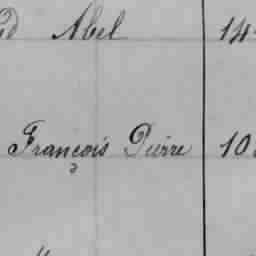 Abel 14
François Pierre 10